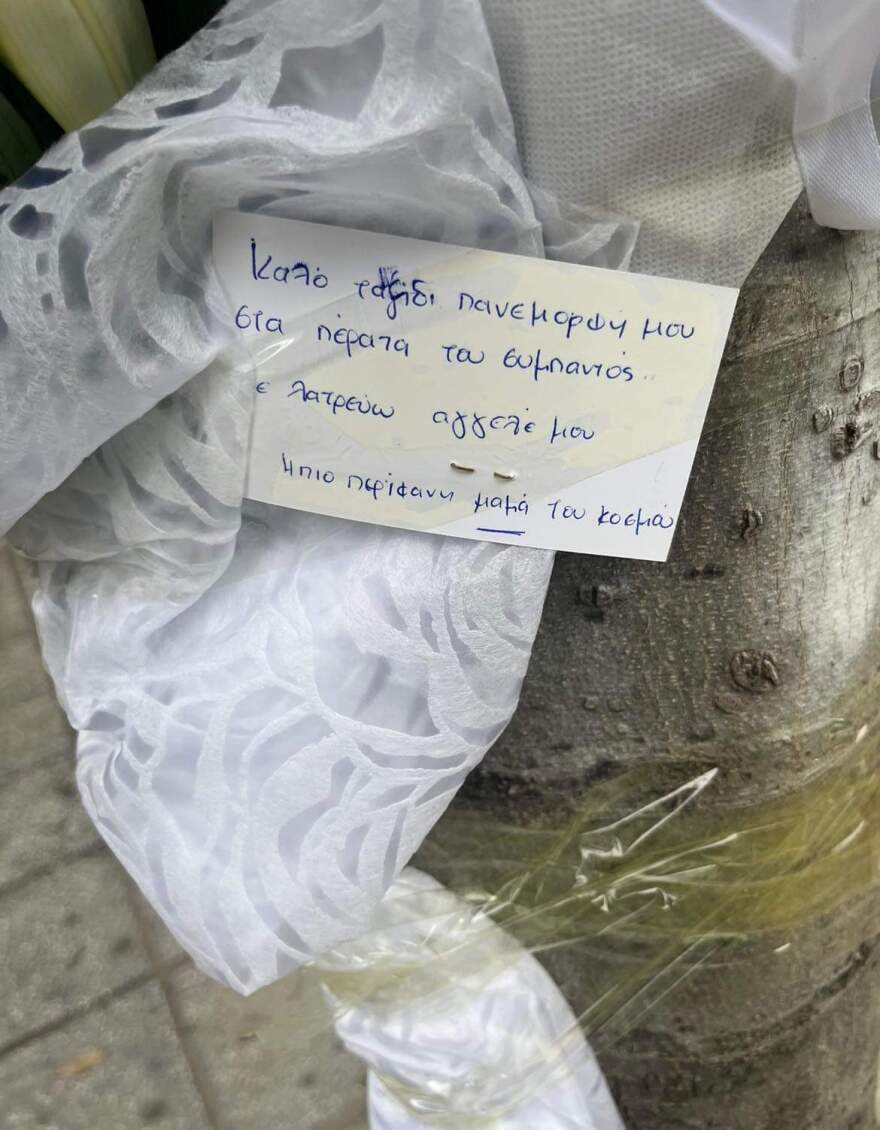 Καλό ταξίδι πανέμορφη μου
στα πέρατα του συμπαντός..
ε λατρεύω αγγελέ μου
Η πιο περίφανη μαμά του κοσμού